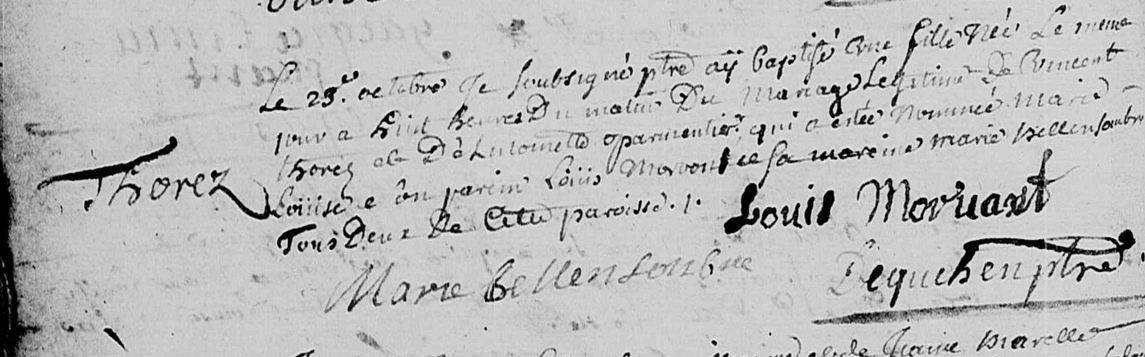 Le 23.e octobre Je soubsigné ptre aÿ baptisé une fille Née Le meme
jour a huit heures Du matin Du Mariage Legitime De Vincent
Thorez
thorez et D'Antoinette parmentier qui a estée Nommée Marie
Louise son parein Louis Morvant et sa mareine Marie bellensoubre
Tous Deux De Cette paroisse ./.
Louis Morvant
Marie bellensoubre
Dequehen ptre
Marelle